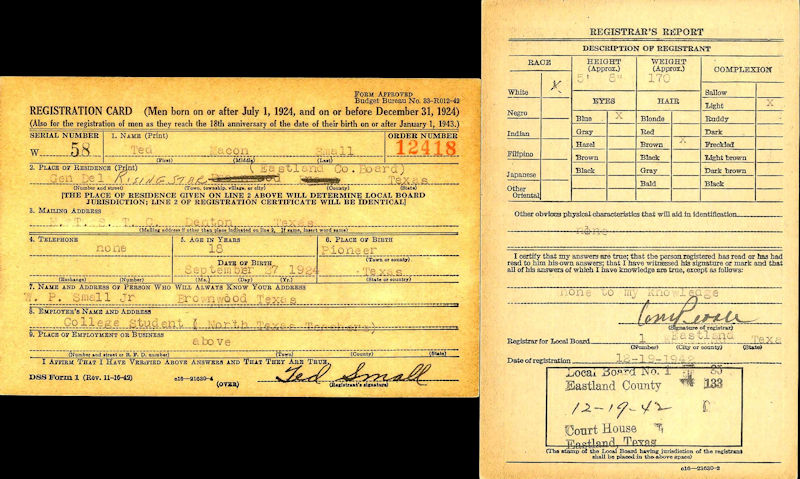 FORM APPROVED
Budget Bureau No. 33-R012-42
REGISTRATION CARD (Men born on or after July 1, 1924, and on or before December 31, 1924)
(Also for the registration of men as they reach the 18th anniversary of the date of their birth on or after January 1, 1943.)
SERIAL NUMBER
1. NAME (Print)
ORDER NUMBER
W 58
Ted Macon Small
12418
(First) (Middle) (Last)
2. PLACE OF RESIDENCE (Print)
(Eastland Co. Board)
Gen Del RISING STAR Texas
(Number and street) (Town, township, village, or city) (County) (State)
[THE PLACE OF RESIDENCE GIVEN ON LINE 2 ABOVE WILL DETERMINE LOCAL BOARD
JURISDICTION; LINE 2 OF REGISTRATION CERTIFICATE WILL BE IDENTICAL]
3. MAILING ADDRESS
T. C. Denton Texas
(Mailing address if other than place indicated on line 2. If same, insert word same)
4. TELEPHONE
5. AGE IN YEARS
6. PLACE OF BIRTH
none
18
Pioneer
DATE OF BIRTH
(Town or county)
September 27 1924
Texas
(Exchange) (Number)
(Mo.) (Day) (Yr.)
(State or country)
7. NAME AND ADDRESS OF PERSON WHO WILL ALWAYS KNOW YOUR ADDRESS
P. Small Jr Brownwood Texas
8. EMPLOYER'S NAME AND ADDRESS
College Student ( North Texas Teachers)
9. PLACE OF EMPLOYMENT OR BUSINESS
above
(Number and street or R. F. D. number) (Town) (County) (State)
I AFFIRM THAT I HAVE VERIFIED ABOVE ANSWERS AND THAT THEY ARE TRUE.
DSS Form 1 (Rev. 11-16-42)
c16—21630-4
(OVER)
Ted Small
(Registrant's signature)
REGISTRAR'S REPORT
DESCRIPTION OF REGISTRANT
RACE
HEIGHT (Approx.)
WEIGHT (Approx.)
COMPLEXION
5' 8"
170
White X
Negro
Indian
Filipino
Japanese
Other Oriental
EYES
Blue X
Gray
Hazel
Brown
Black
HAIR
Blonde
Red
Brown X
Black
Gray
Bald
Sallow
Light X
Ruddy
Dark
Freckled
Light brown
Dark brown
Black
Other obvious physical characteristics that will aid in identification
none
I certify that my answers are true; that the person registered has read or has had
read to him his own answers; that I have witnessed his signature or mark and that
all of his answers of which I have knowledge are true, except as follows:
none to my knowledge
(Signature of registrar)
Registrar for Local Board Eastland Texa
(Number) (City or county) (State)
Date of registration 12-19-1942
Local Board No. 1 35
Eastland County 133
12-19-42
Court House
Eastland, Texas
(The stamp of the Local Board having jurisdiction of the registrant
shall be placed in the above space)
c16—21630-2